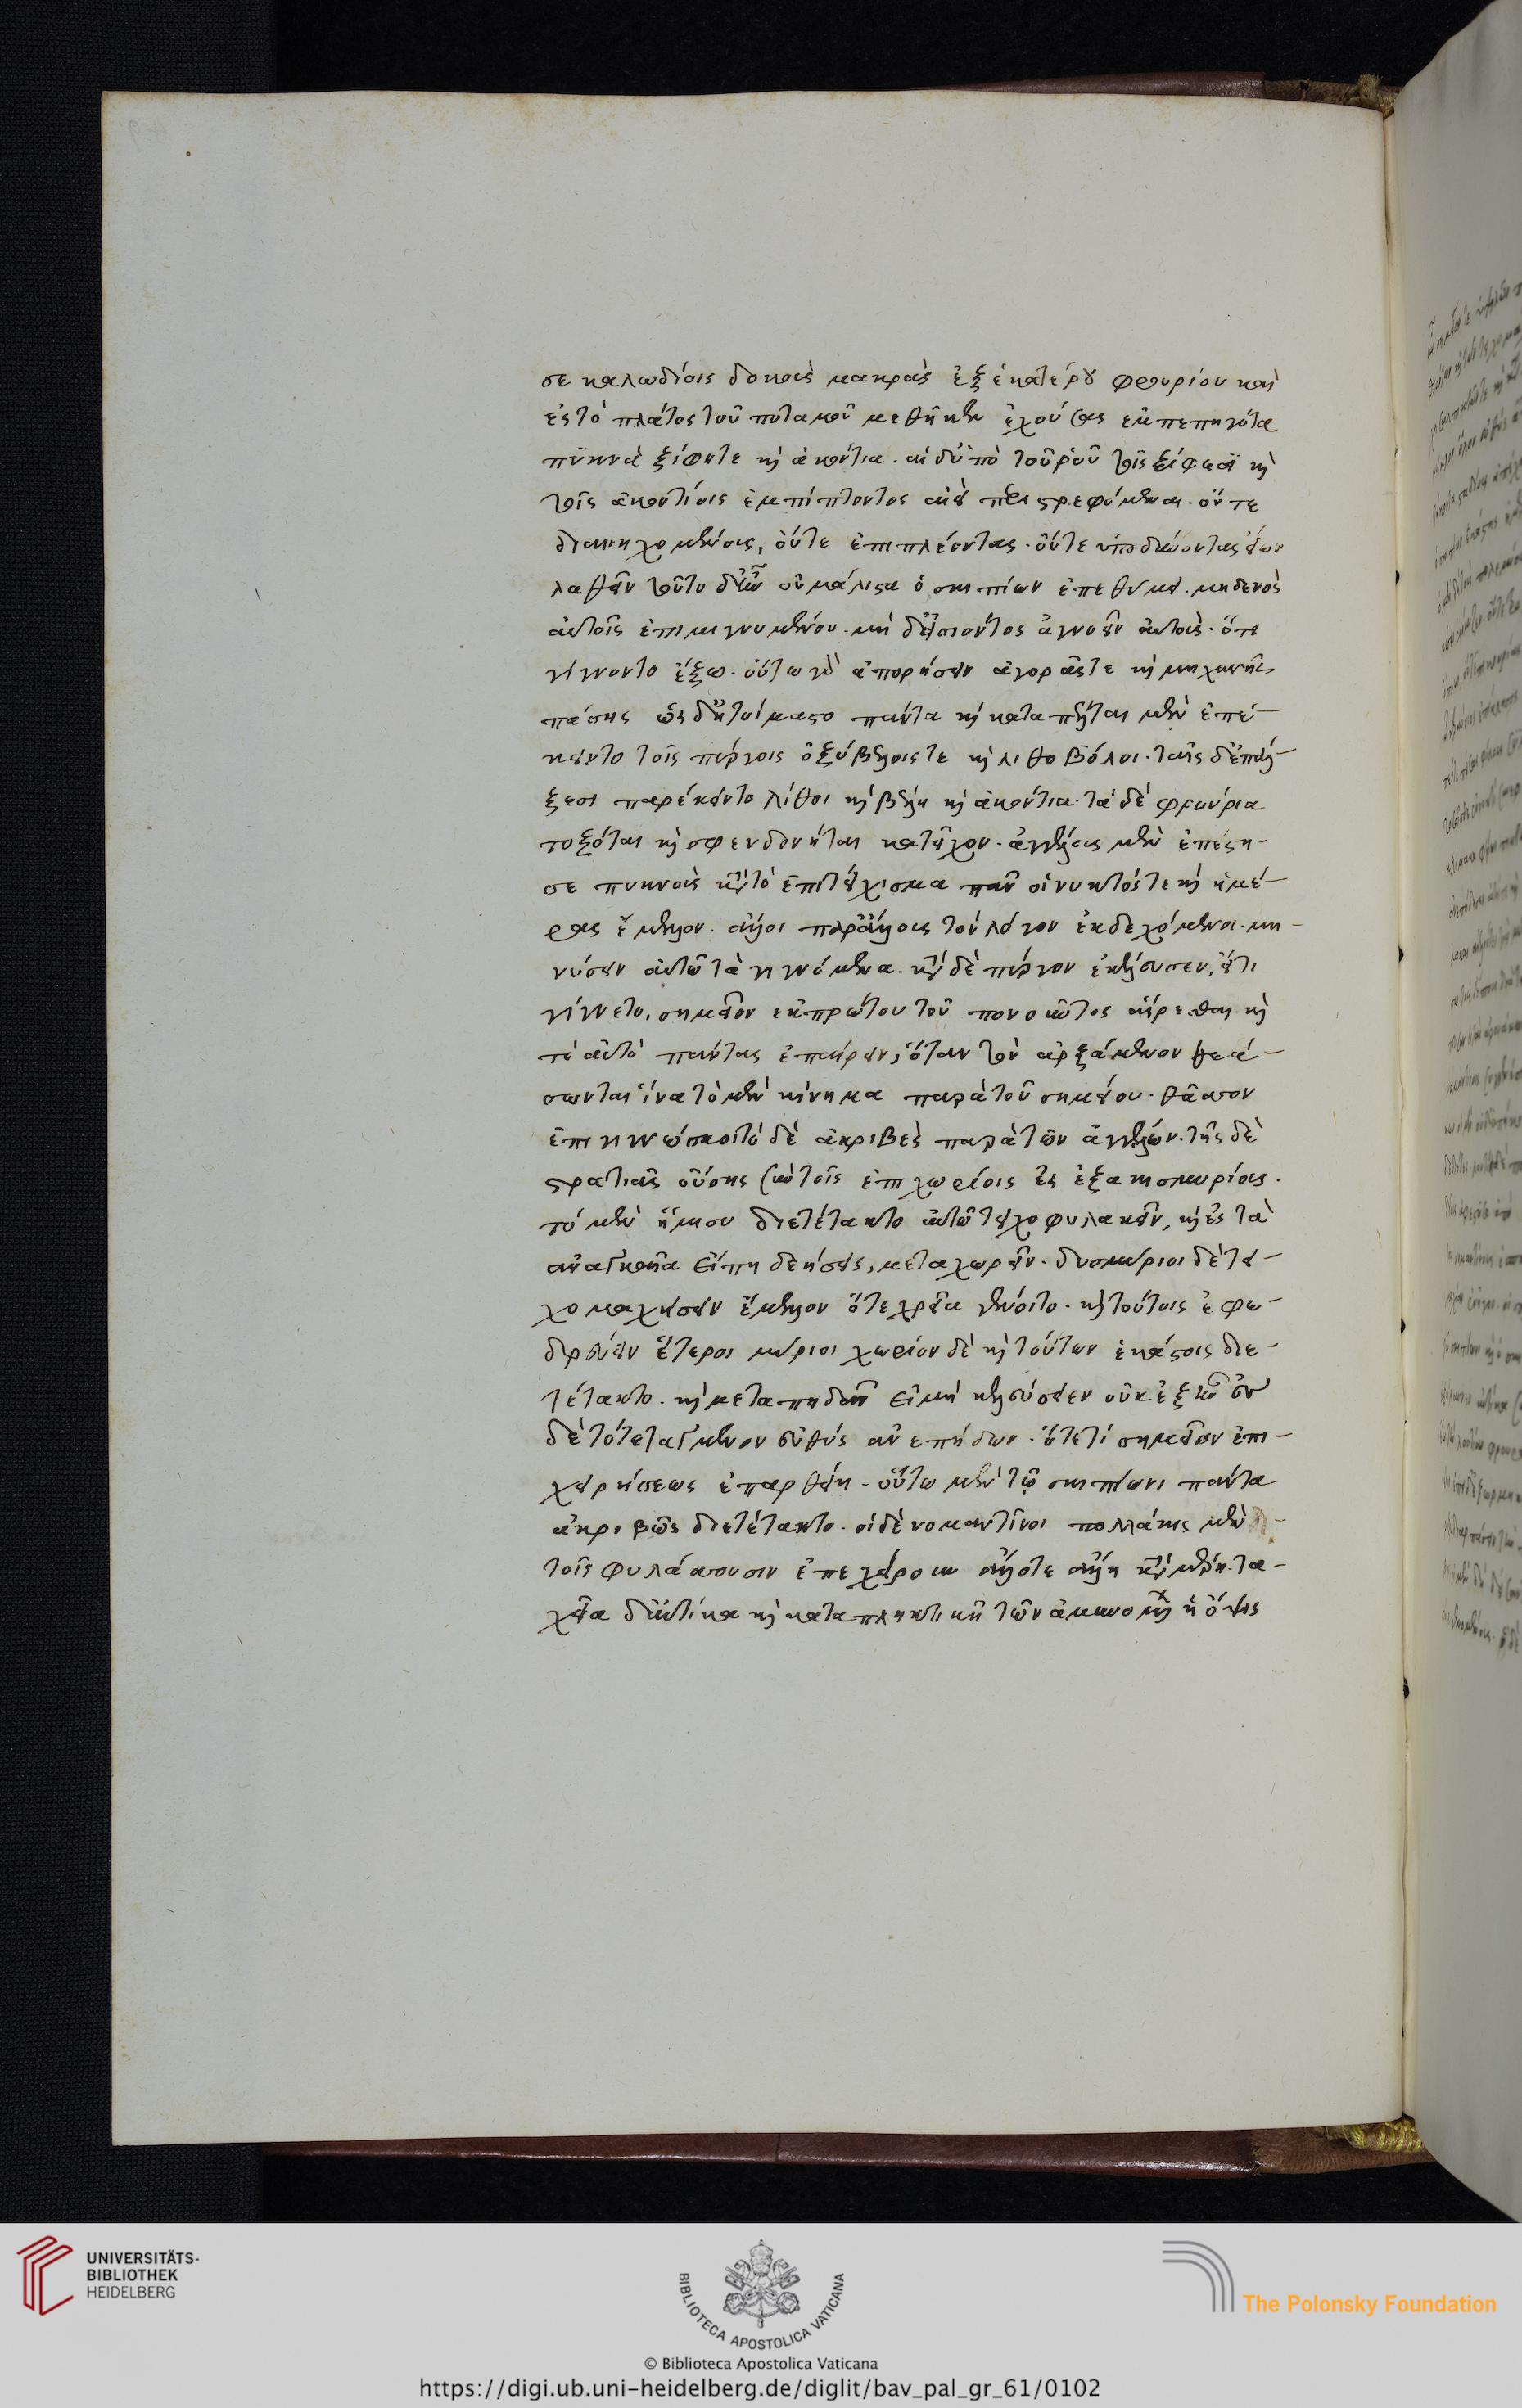 σε καλωδίοις δοκοὺς μακρὰς ἐξ ἑκατέρου φρουρίου καὶ
ἐς τὸ πλάτος τοῦ ποταμοῦ μεθῆκεν ἐχούσας ἐμπεπηγότα
πυκνὰ ξίφη τε καὶ ἀκόντια. αἱ δ' ὑπὸ τοῦ ῥοῦ τοῖς ξίφεσι καὶ
τοῖς ἀκοντίοις ἐμπίπτοντος αἰεὶ περιστρεφόμεναι. οὔτε
διανηχομένοις, οὔτε ἐπιπλέοντας. οὔτε ὑποδύνοντας εἴων
λαθεῖν τοῦτο δ' ἦν οὗ μάλιστα ὁ σκιπίων ἐπεθύμει. μηδενὸς
αὐτοῖς ἐπιμιγνυμένου. μὴ δ' ἐσιόντος ἀγνοεῖν αὐτοὺς. ὅτι
γίγνοιτο ἔξω. οὕτω γὰρ ἀπορήσειν ἀγορᾶς τε καὶ μηχανῆς
πάσης ὡς δ' ἡτοίμαστο πάντα καὶ καταπέλται μὲν ἐπέ-
κειντο τοῖς πύργοις ὀξυβελεῖς τε καὶ λιθοβόλοι. ταῖς δ' ἐπάλ-
ξεσι παρέκειντο λίθοι καὶ βέλη καὶ ἀκόντια. τὰ δὲ φρούρια
τοξόται καὶ σφενδονῆται κατεῖχον. ἀγγέλους μὲν ἐπέστη-
σε πυκνοὺς κατὰ τὸ ἐπιτείχισμα πᾶν οἳ νυκτός τε καὶ ἡμέ-
ρας ἔμελλον. ἄλλοι παρ' ἄλλοις τὸν λόγον ἐκδεχόμενοι. μη-
νύσειν αὐτῷ τὰ γιγνόμενα. κατὰ δὲ πύργον ἐκέλευσεν, εἴ τι
γίγνετο, σημεῖον ἐκ πρώτου τοῦ πονοῦντος αἴρεσθαι. καὶ
τὸ αὐτὸ πάντας ἐπαίρειν, ὅταν τὸν ἀρξάμενον θεά-
σωνται ἵνα τὸ μὲν κίνημα παρὰ τοῦ σημείου. θᾶσσον
ἐπιγιγνώσκοι τὸ δὲ ἀκριβὲς παρὰ τῶν ἀγγέλων. τῆς δὲ
στρατιᾶς οὔσης σὺν τοῖς ἐπιχωρίοις ἐς ἑξακισμυρίους.
τὸ μὲν ἥμισυ διετέτακτο αὐτῷ τειχοφυλακεῖν, καὶ ἐς τὰ
ἀναγκαῖα εἴ πῃ δεήσειε, μεταχωρεῖν. δισμύριοι δὲ τει-
χομαχήσειν ἔμελλον ὅτε χρεία γένοιτο. καὶ τούτοις ἐφε-
δρεύειν ἕτεροι μύριοι χωρίον δὲ καὶ τούτων ἑκάστοις διε-
τέτακτο. καὶ μεταπηδᾶν εἰ μὴ κελεύσειεν οὐκ ἐξῆν ἐς
δὲ τὸ τεταγμένον εὐθὺς ἀνεπήδων. ὅτε τι σημεῖον ἐπι-
χειρήσεως ἐπαρθείη. οὕτω μὲν τῷ σκιπίωνι πάντα
ἀκριβῶς διετέτακτο. οἱ δὲ νομαντῖνοι πολλάκις μὲν
τοῖς φυλάσσουσιν ἐπεχείρουν ἄλλοτε ἄλλῃ κατὰ μέρη. τα-
χεῖα δ' αὐτίκα καὶ καταπληκτικὴ τῶν ἀμυνομένων ἡ ὄψις
UNIVERSITÄTS-
BIBLIOTHEK
HEIDELBERG
BIBLIOTECA APOSTOLICA VATICANA
© Biblioteca Apostolica Vaticana
The Polonsky Foundation
https://digi.ub.uni-heidelberg.de/diglit/bav_pal_gr_61/0102